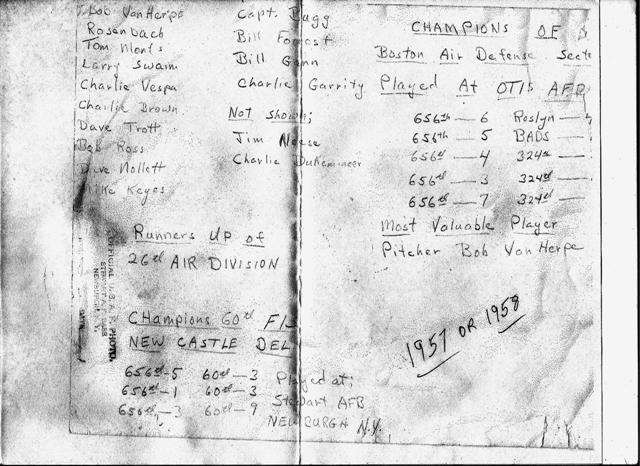 Bob VonHerpe
Rosenbach
Tom Monts
Larry Swaim
Charlie Vespa
Charlie Brown
Dave Trott
Bob Ross
Dave Mollett
Mike Keyes
Capt. Bugg
Bill Forrest
Bill Gann
Charlie Garrity
Not Shown;
Jim Neese
Charlie
CHAMPIONS OF
Boston Air Defense
Played At OTIS AFB
656th — 6 Roslyn —
656th — 5 BADS —
656th — 4 324th —
656th — 3 324th —
656th — 7 324th —
Most Valuable Player
Pitcher Bob VonHerpe
Runners UP of
26th AIR DIVISION
OFFICIAL U.S.A.F. PHOTO.
STEWART AFB
NEWBURGH N.Y.
CHAmpions 60th
NEW CASTLE DEL
656th-5 60th-3
656th-1 60th-3
656th-3 60th-9
Played at;
Stewart AFB
NEWBURGH N.Y.
1957 OR 1958